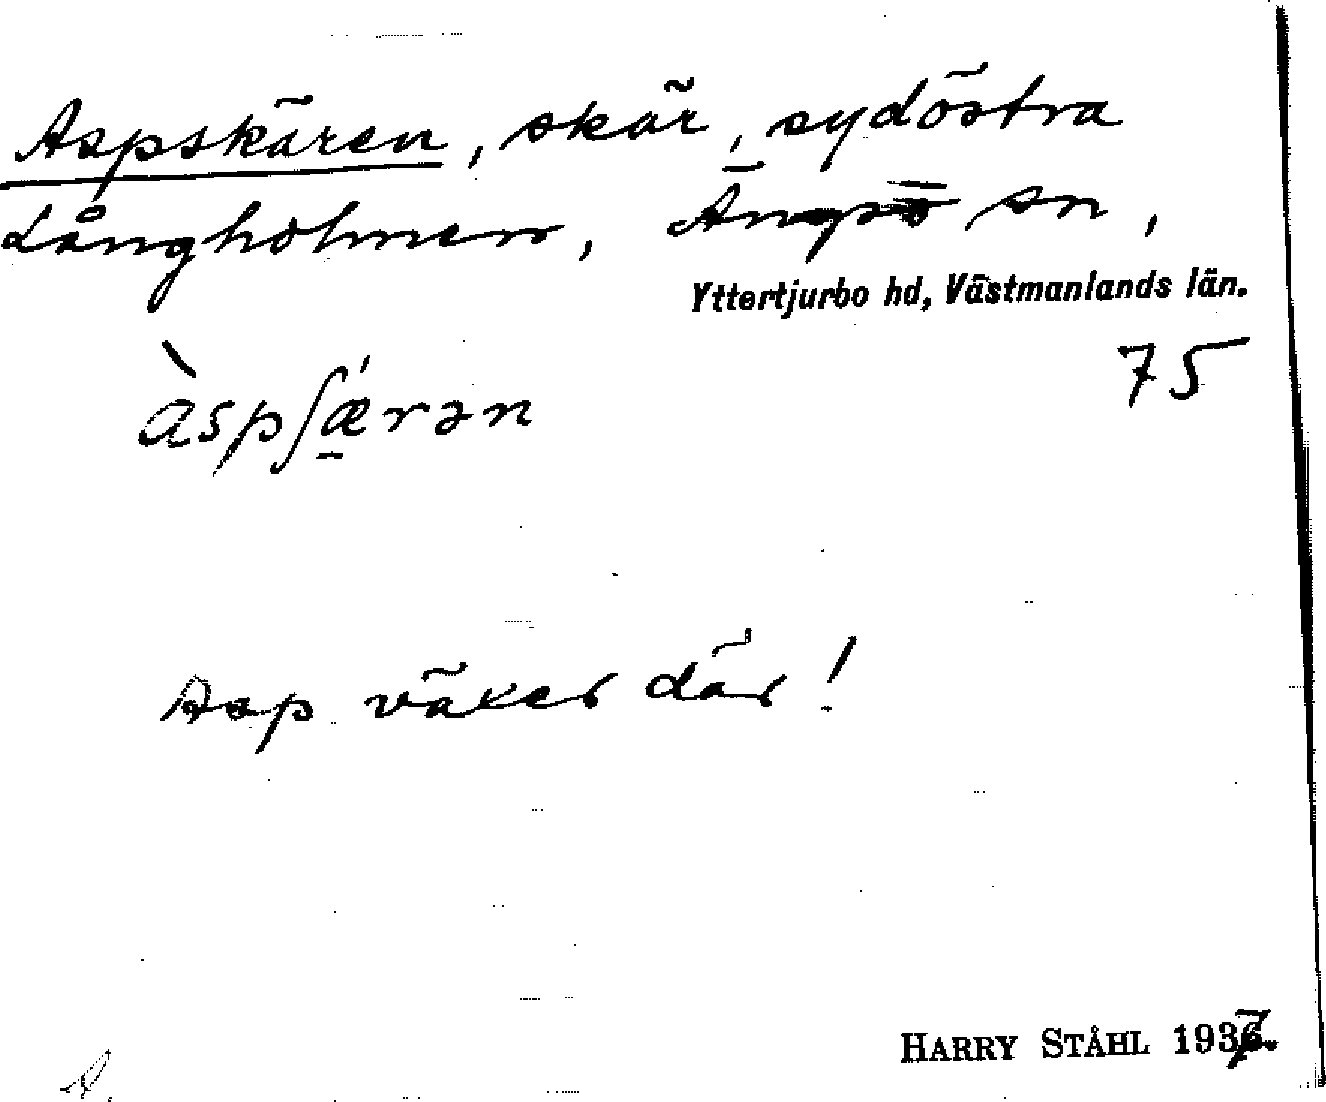 Aspskären, skär, sydöstra
Långholmen, Ängsö sn,
Yttertjurbo hd, Västmanlands län.
75
àspʃǽ̲rən
Asp växer där!
HARRY STÅHL 1937.